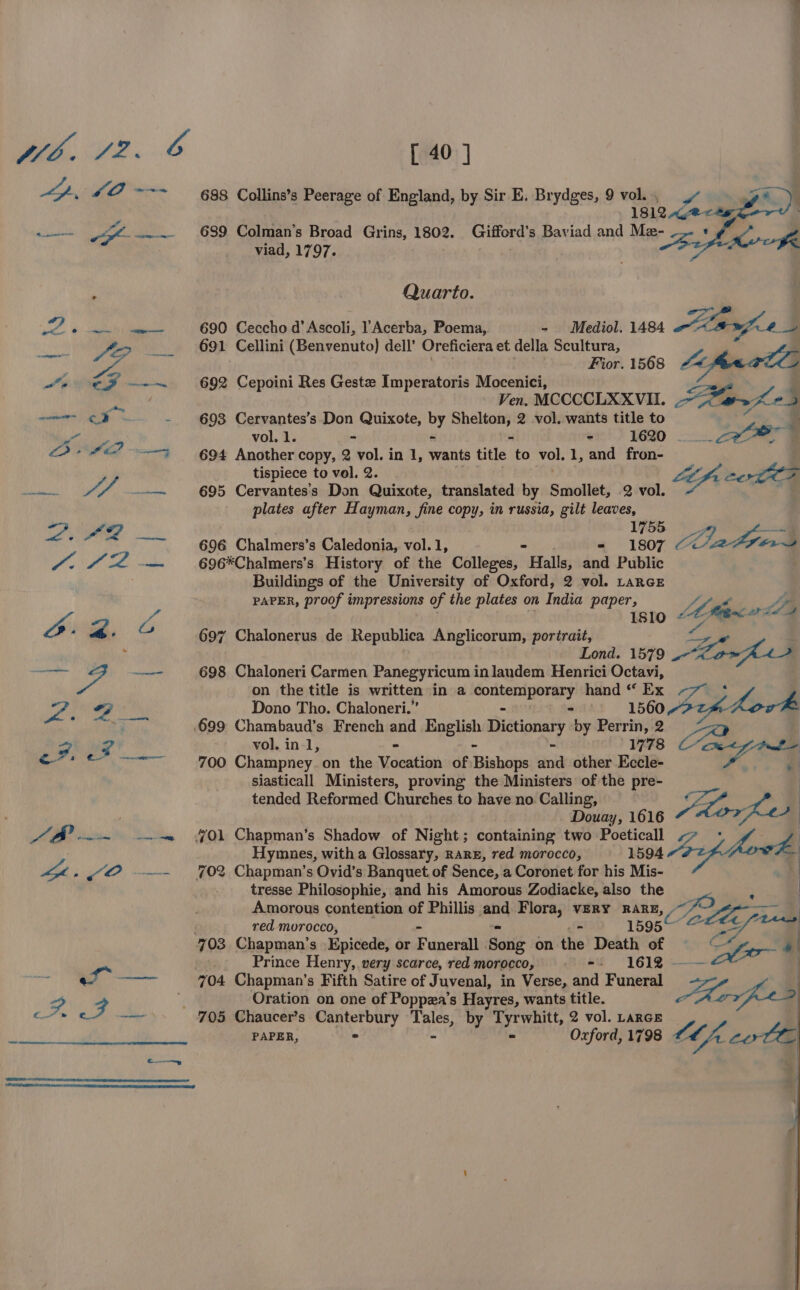 116. 12. 6
[ 40 ]
4. 10 --- 688 Collins's Peerage of England, by Sir E. Brydges, 9 vol.
1812
689 Colman's Broad Grins, 1802. Gifford's Baviad and Mæ-
viad, 1797.
Quarto.
2. — — 690 Ceccho d'Ascoli, l'Acerba, Poema, - Mediol. 1484
691 Cellini (Benvenuto) dell' Oreficiera et della Scultura,
Fior. 1568
692 Cepoini Res Gestæ Imperatoris Mocenici,
Ven. MCCCCLXXVII.
693 Cervantes's Don Quixote, by Shelton, 2 vol. wants title to
vol. 1. - - - - 1620
694 Another copy, 2 vol. in 1, wants title to vol. 1, and fron-
tispiece to vol. 2.
— 11 — 695 Cervantes's Don Quixote, translated by Smollet, 2 vol.
plates after Hayman, fine copy, in russia, gilt leaves,
1755
696 Chalmers's Caledonia, vol. 1, - - 1807
1. 12 — 696*Chalmers's History of the Colleges, Halls, and Public
Buildings of the University of Oxford, 2 vol. LARGE
PAPER, proof impressions of the plates on India paper,
1810
6. 2. 6 697 Chalonerus de Republica Anglicorum, portrait,
Lond. 1579
698 Chaloneri Carmen Panegyricum in laudem Henrici Octavi,
on the title is written in a contemporary hand “ Ex
Dono Tho. Chaloneri.” - - 1560
699 Chambaud's French and English Dictionary by Perrin, 2
vol. in 1, - - - 1778
3. 3 — 700 Champney on the Vocation of Bishops and other Eccle-
siasticall Ministers, proving the Ministers of the pre-
tended Reformed Churches to have no Calling,
Douay, 1616
701 Chapman's Shadow of Night; containing two Poeticall
Hymnes, with a Glossary, RARE, red morocco, 1594
702 Chapman's Ovid's Banquet of Sence, a Coronet for his Mis-
tresse Philosophie, and his Amorous Zodiacke, also the
Amorous contention of Phillis and Flora, VERY RARE,
red morocco, - - - 1595
703 Chapman's Epicede, or Funerall Song on the Death of
Prince Henry, very scarce, red morocco, - - 1612
— 5 — 704 Chapman's Fifth Satire of Juvenal, in Verse, and Funeral
Oration on one of Poppæa's Hayres, wants title.
3. 3 — 705 Chaucer's Canterbury Tales, by Tyrwhitt, 2 vol. LARGE
PAPER, - - - Oxford, 1798